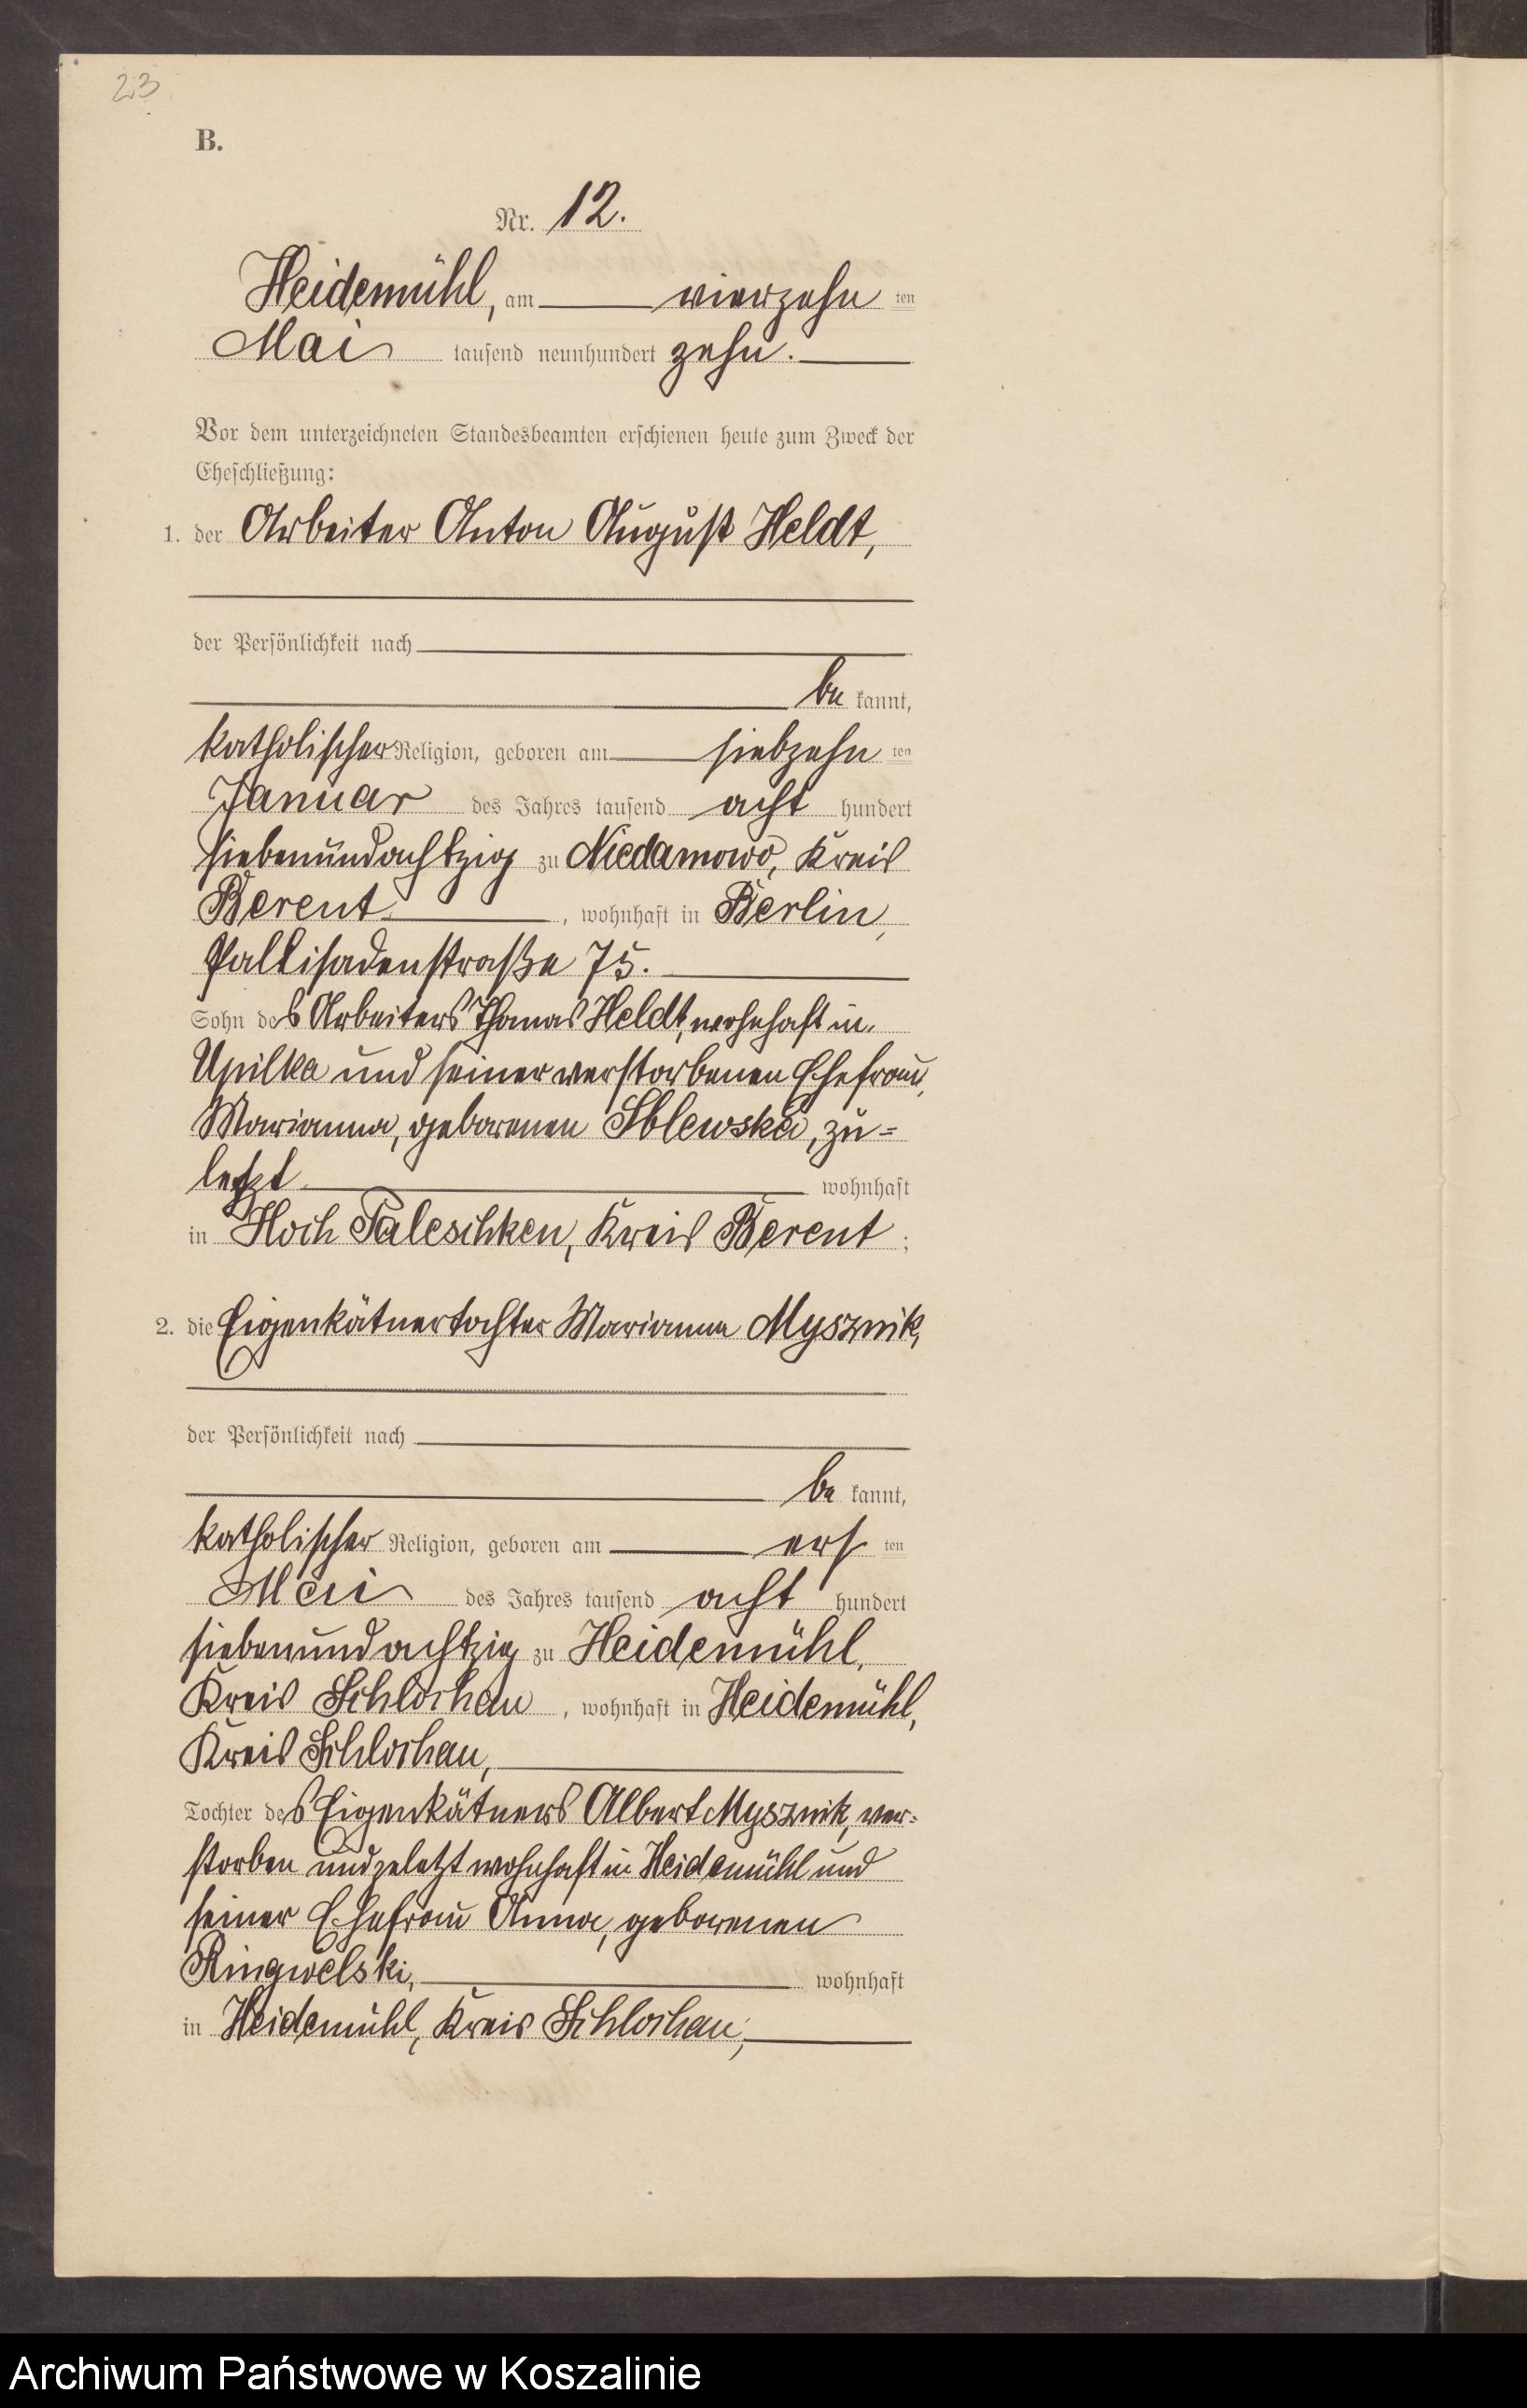 23
B.
Nr. 12.
Heidemühl, am vierzehn ten
Mai tausend neunhundert zehn.
Vor dem unterzeichneten Standesbeamten erschienen heute zum Zweck der
Eheschließung:
1. der Arbeiter Anton August Heldt,
der Persönlichkeit nach
be kannt,
katholischer Religion, geboren am siebzehn ten
Januar des Jahres tausend acht hundert
siebenundachtzig zu Niedamowo, Kreis
Berent, wohnhaft in Berlin,
Pallisadenstraße 75.
Sohn des Arbeiters Thomas Heldt, wohnhaft in
Upilka und seiner verstorbenen Ehefrau,
Marianna, geborenen Sblewska, zu=
letzt wohnhaft
in Hoch Paleschken, Kreis Berent;
2. die Eigenkätnertochter Marianna Mysznik,
der Persönlichkeit nach
be kannt,
katholischer Religion, geboren am ers ten
Mai des Jahres tausend acht hundert
siebenundachtzig zu Heidemühl,
Kreis Schlochau, wohnhaft in Heidemühl,
Kreis Schlochau,
Tochter des Eigenkätners Albert Mysznik, ver=
storben und zuletzt wohnhaft in Heidemühl und
seiner Ehefrau Anna, geborenen
Ringwelski, wohnhaft
in Heidemühl, Kreis Schlochau;
Archiwum Państwowe w Koszalinie